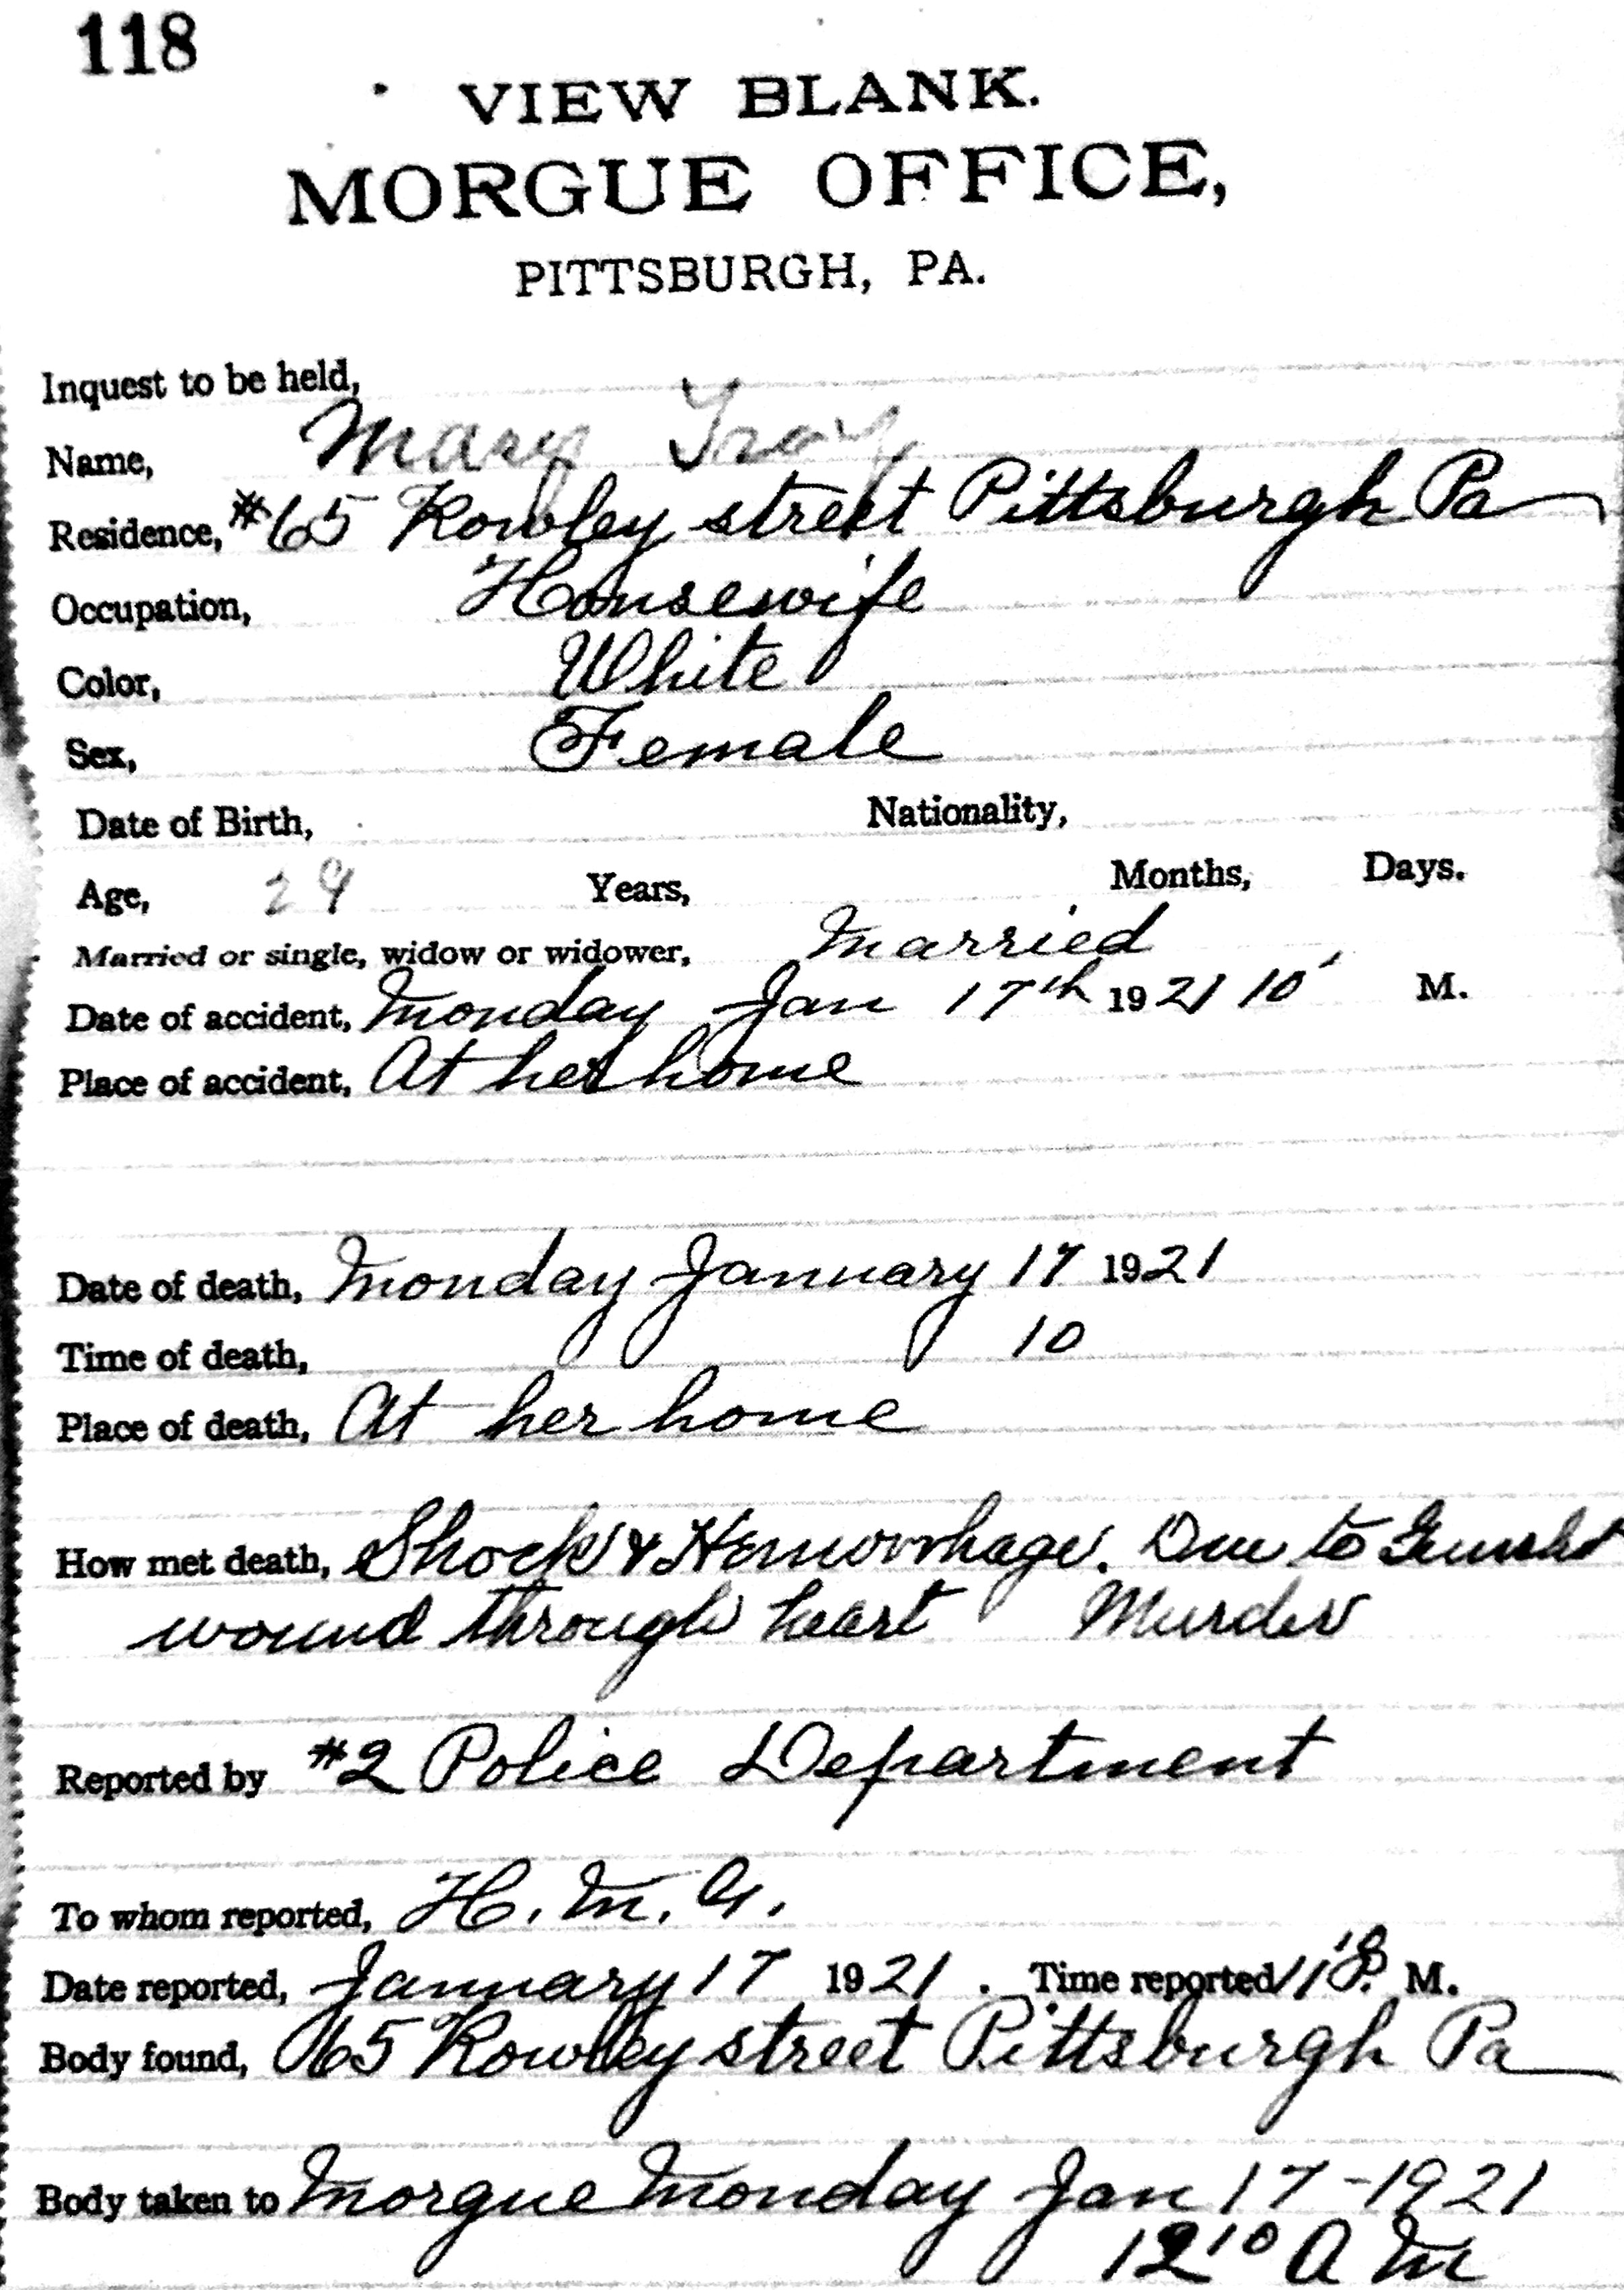 118
VIEW BLANK.
MORGUE OFFICE,
PITTSBURGH, PA.
Inquest to be held,
Name, Mary Tray
Residence, #65 Rowley street Pittsburgh Pa
Occupation, Housewife
Color, White
Sex, Female
Date of Birth, Nationality,
Age, 29 Years, Months, Days.
Married or single, widow or widower, Married
Date of accident, Monday Jan 17th 1921 10 M.
Place of accident, At her home
Date of death, Monday January 17 1921
Time of death, 10
Place of death, At her home
How met death, Shock & Hemorrhage. Due to Gunshot
wound through heart Murder
Reported by #2 Police Department
To whom reported, H. M. G.
Date reported, January 17 1921. Time reported P. M.
Body found, 65 Rowley street Pittsburgh Pa
Body taken to Morgue Monday Jan 17-1921
12 10 A M